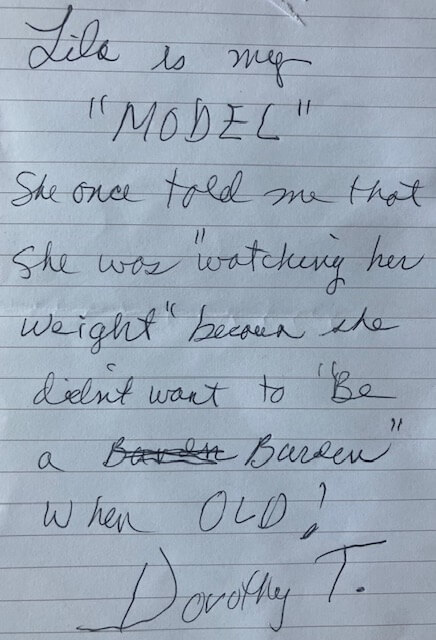 Lila is my
"MODEL"
She once told me that
she was "watching her
weight" becaus she
didn't want to "Be
a Barden Barden"
when OLD!
Dorothy T.